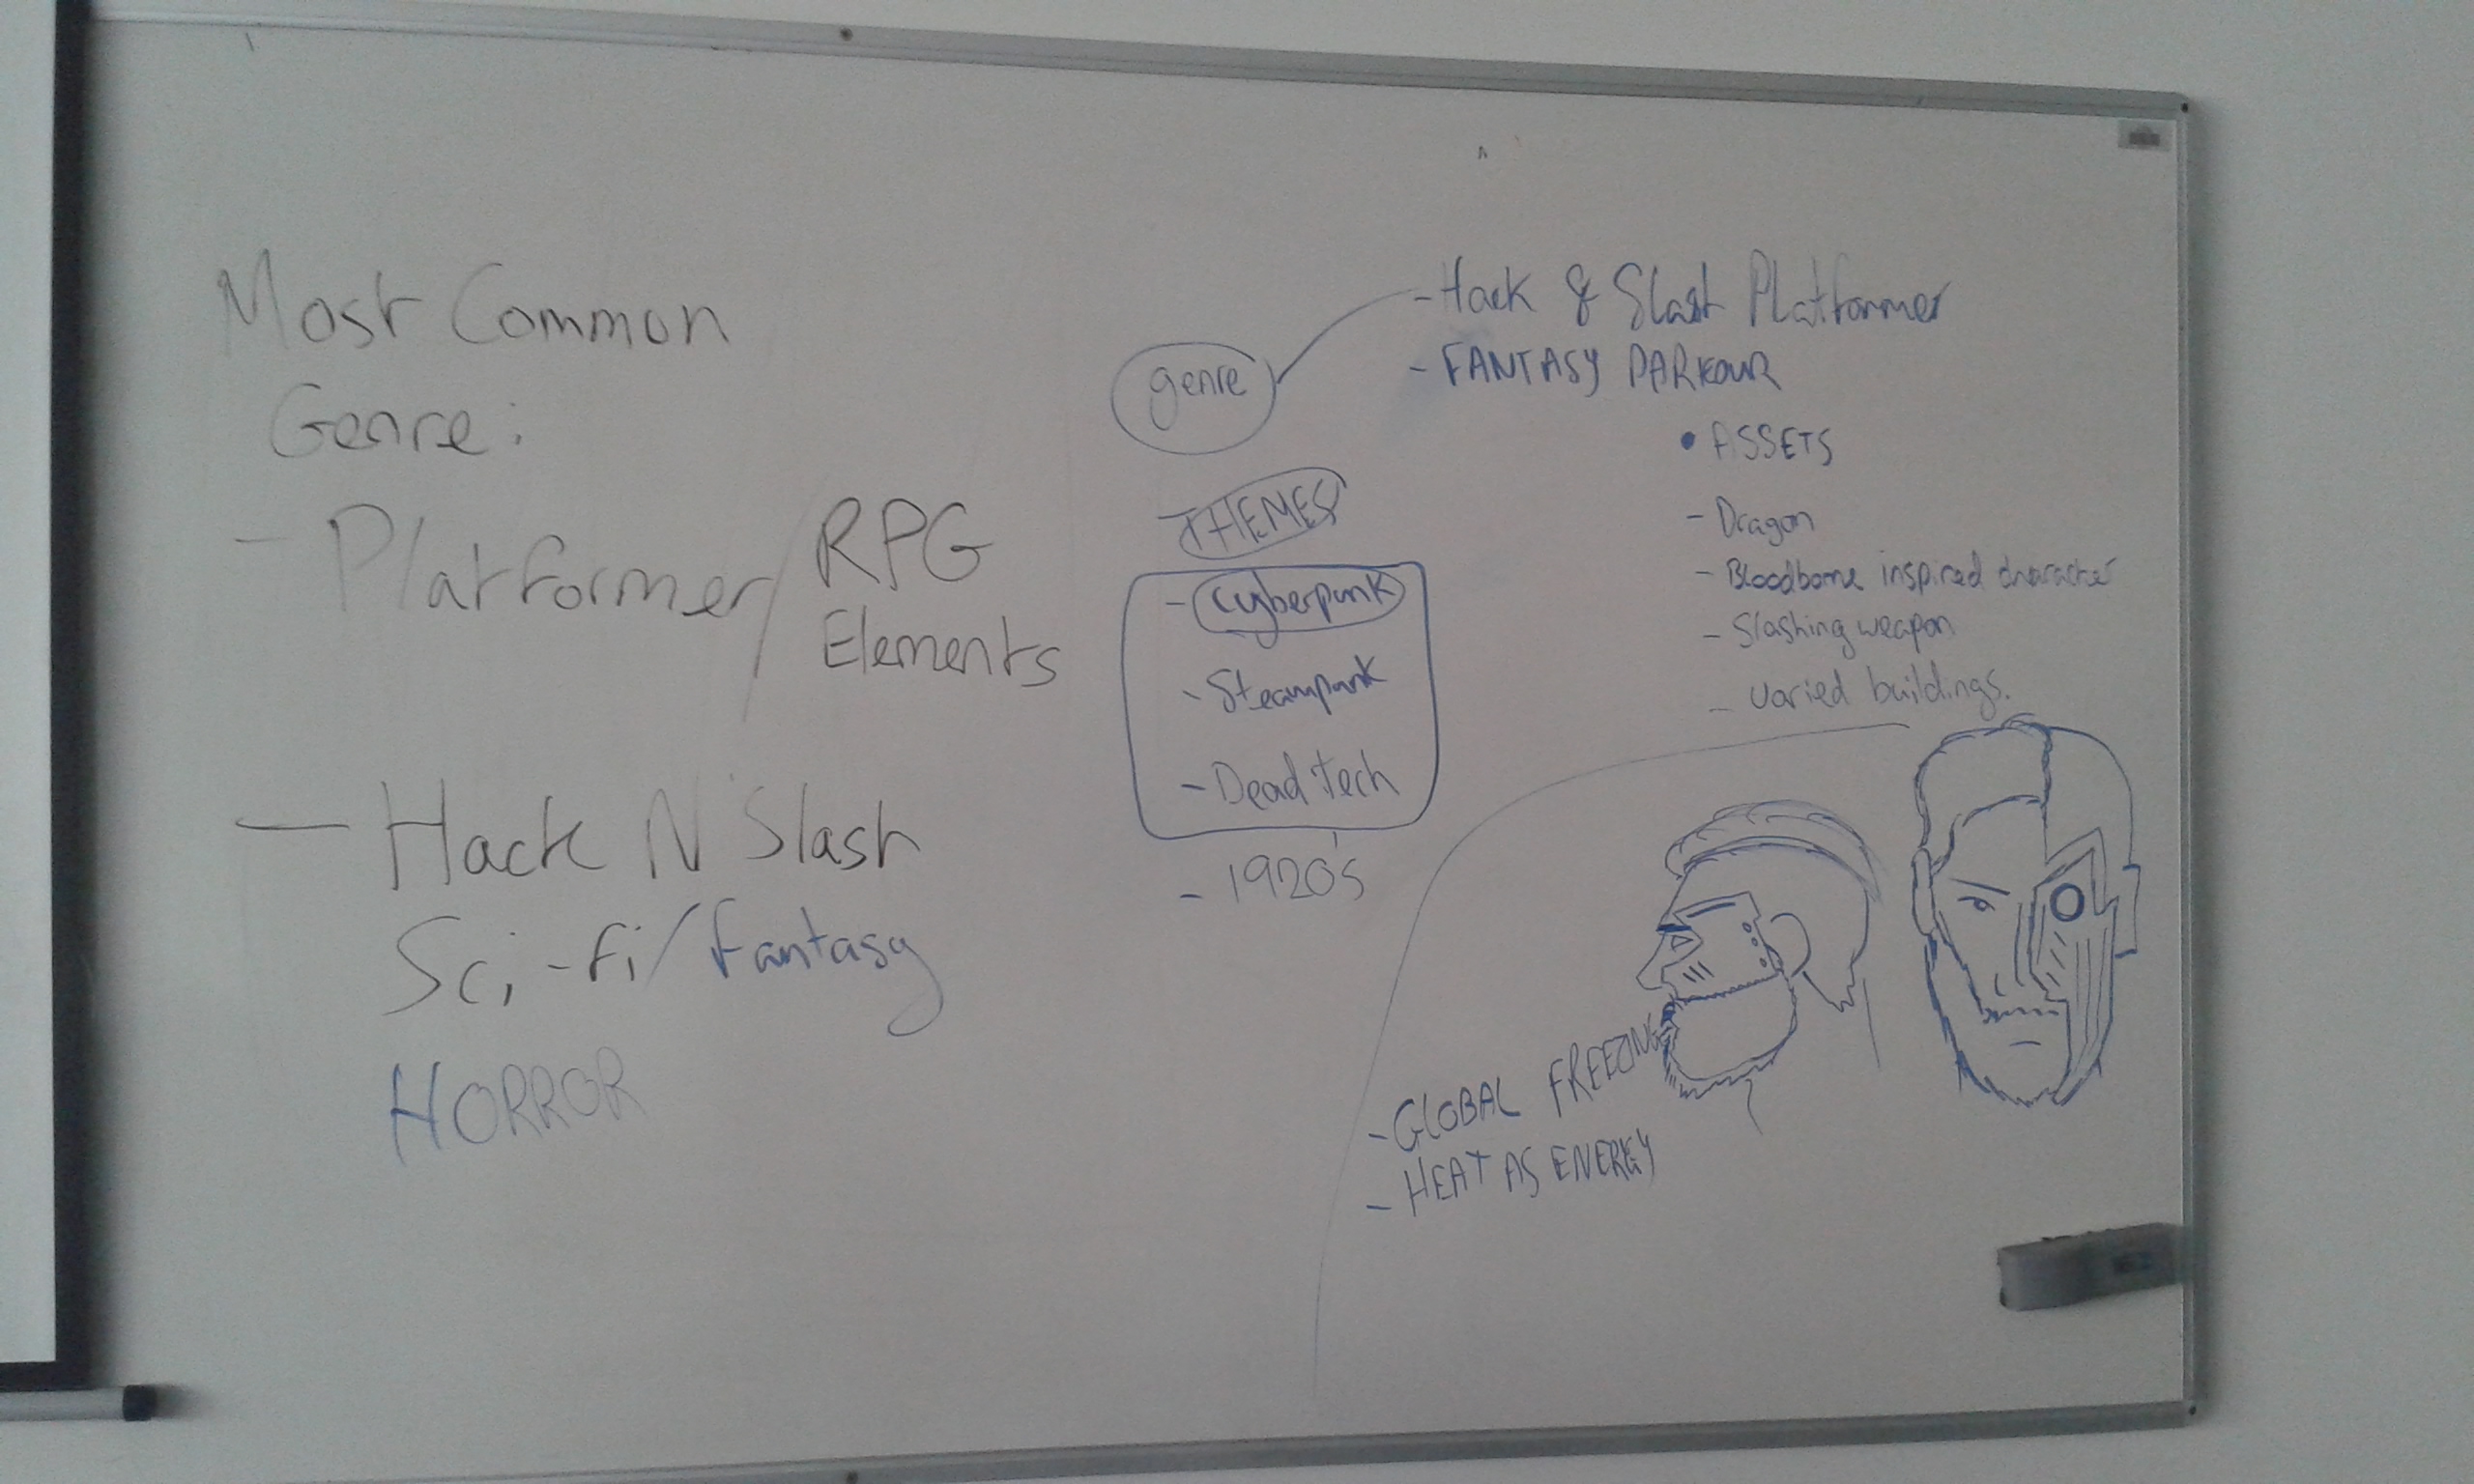 Most Common
Genre:
- Platformer / RPG
Elements
- Hack N Slash
Sci-fi/Fantasy
HORROR
genre
- Hack & Slash Platformer
- FANTASY PARKOUR
THEMES
- Cyberpunk
- Steampunk
- Dead Tech
- 1920's
• ASSETS
- Dragon
- Bloodborne inspired character
- Slashing weapon
- varied buildings.
- GLOBAL FREEZING
- HEAT AS ENERGY